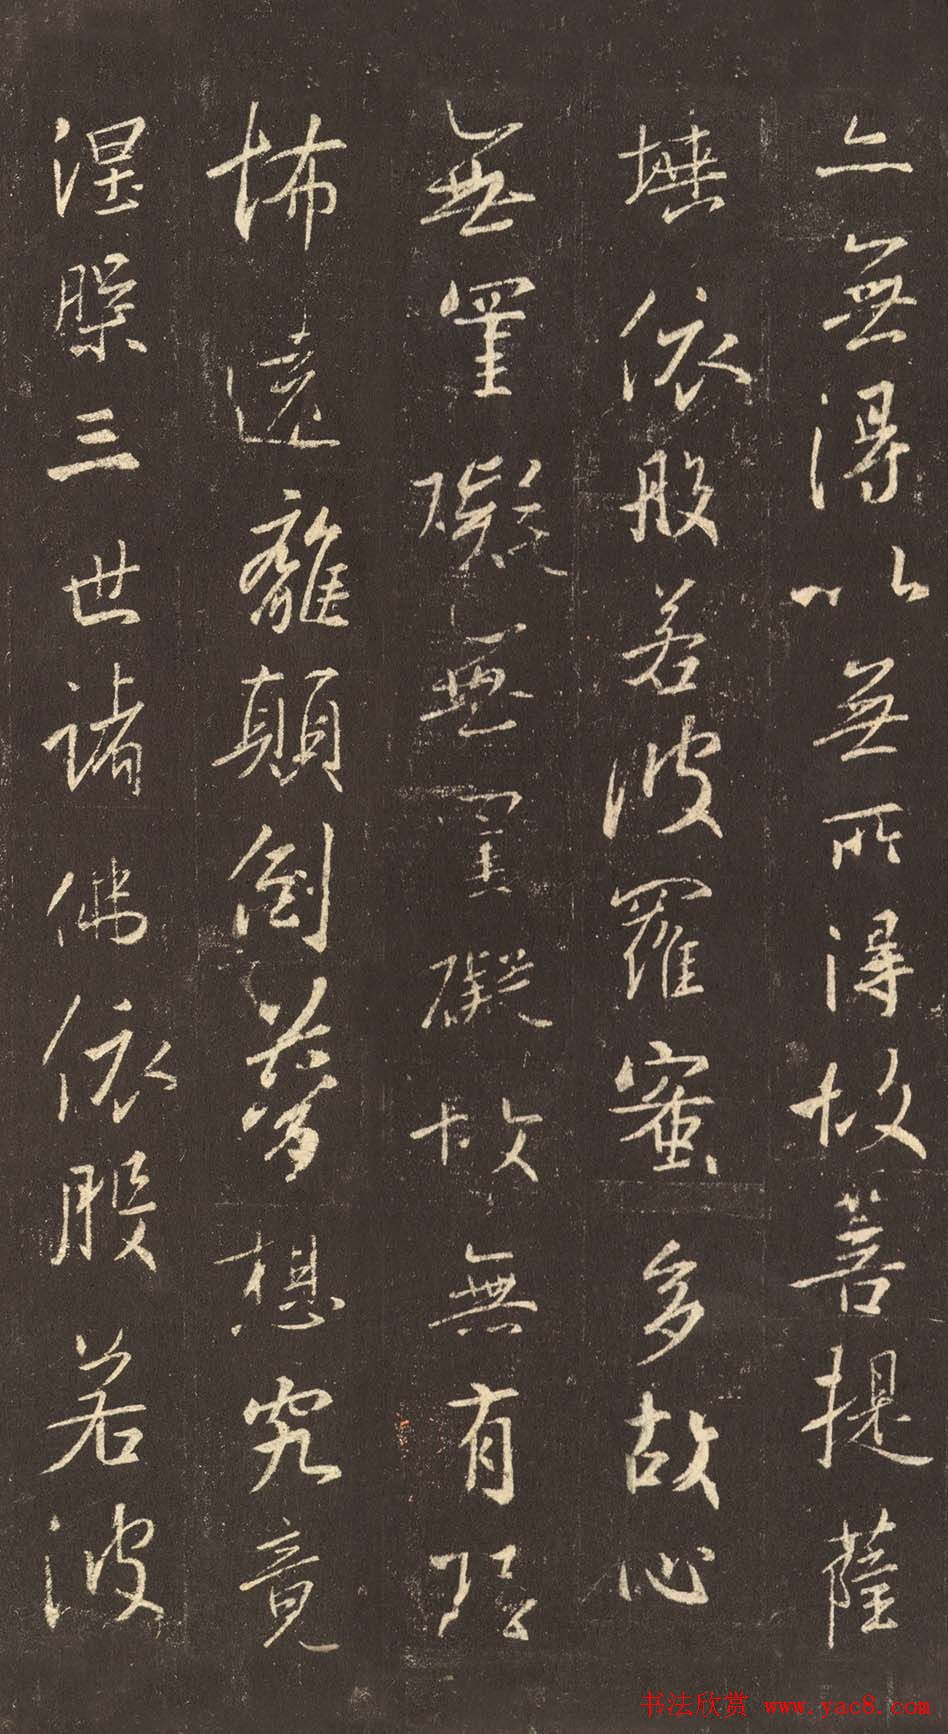 亦無得以無所得故菩提薩
埵依般若波羅蜜多故心
無罣礙無罣礙故無有恐
怖遠離顛倒夢想究竟
涅槃三世諸佛依般若波
书法欣赏 www.yac8.com